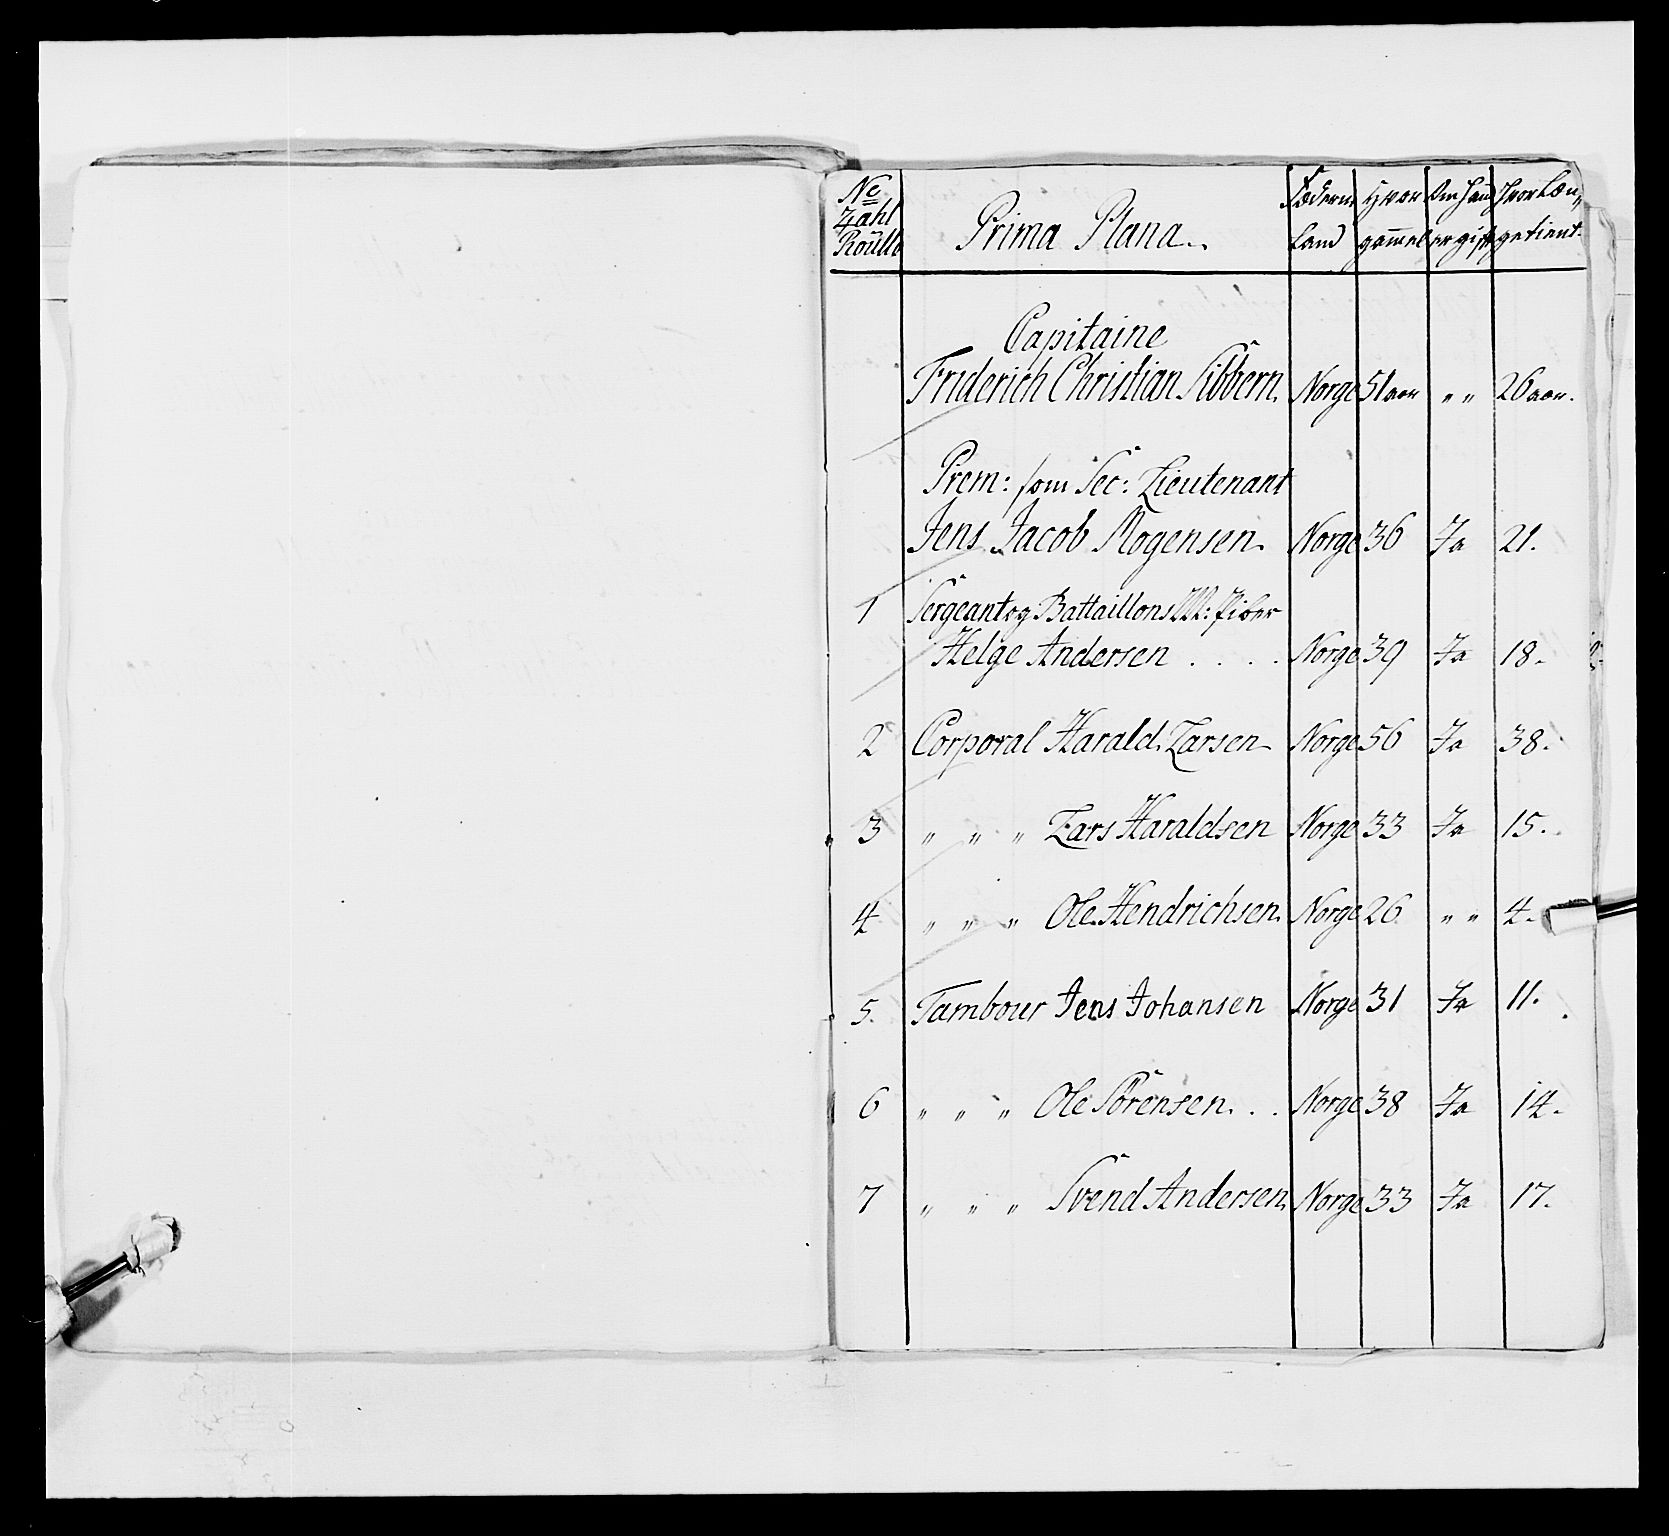 No Zahl Roulle | Prima Plana. | Fæderne Land | Hvor gammel | Om hand er gift | Hvor Læn„ getient.
Capitaine
Friderich Christian Sibbern. | Norge | 51 aar | „ „ | 26 aar.
Prem: som Sec: Lieutenant
Jens Jacob Mogensen. | Norge | 36 | Ja | 21.
1 | Sergeant og Battaillons
Helge Andersen . . . . | Norge | 39 | Ja | 18.
2 | Corporal Harald Larsen | Norge | 56 | Ja | 38.
3 | „ „ „ Lars Haraldsen | Norge | 33 | Ja | 15.
4 | „ „ „ Ole Hendrichsen. | Norge | 26 | „ „ | 4.
5. | Tambour Jens Johansen | Norge | 31 | Ja | 11.
6 | „ „ „ Ole Sörensen. . . | Norge | 38 | Ja | 14.
7 | „ „ „ Svend Andersen. | Norge | 33 | Ja | 17.